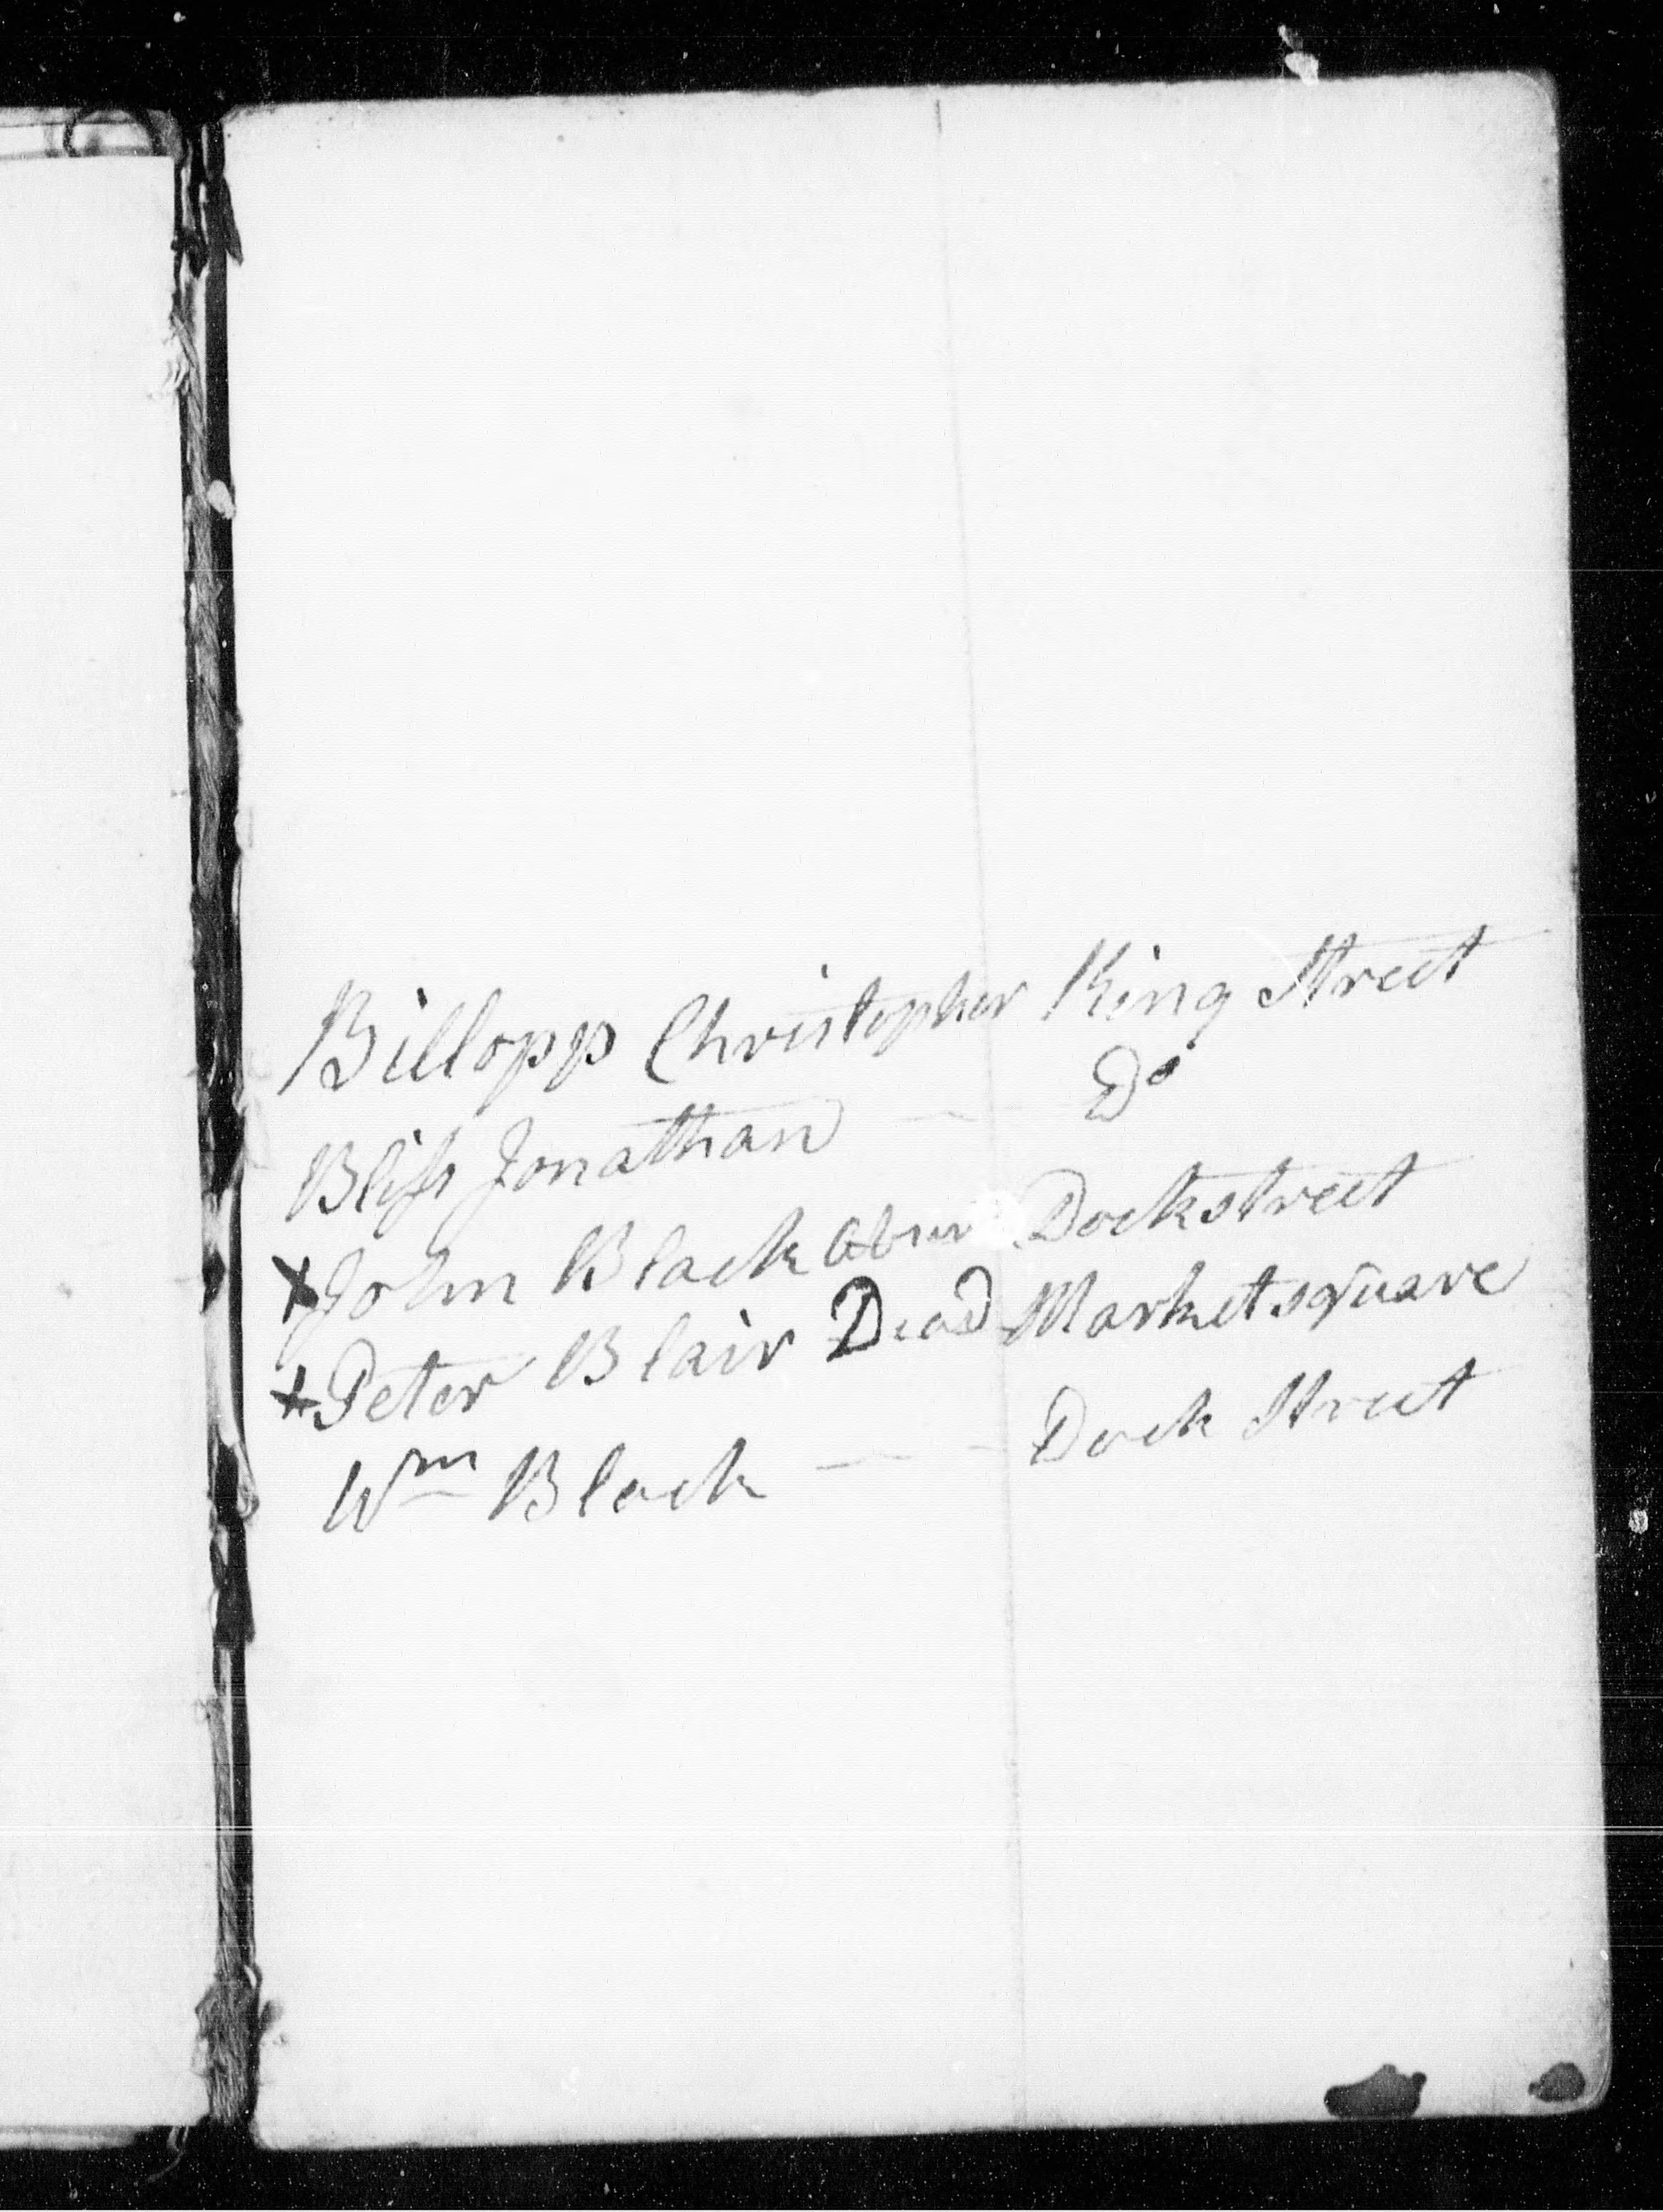 Billopp Christopher King Street
Bliſs Jonathan — Do
x John Black Dockstreet
x Peter Blair Dead Marketsquare
Wm Black — - Dock Street